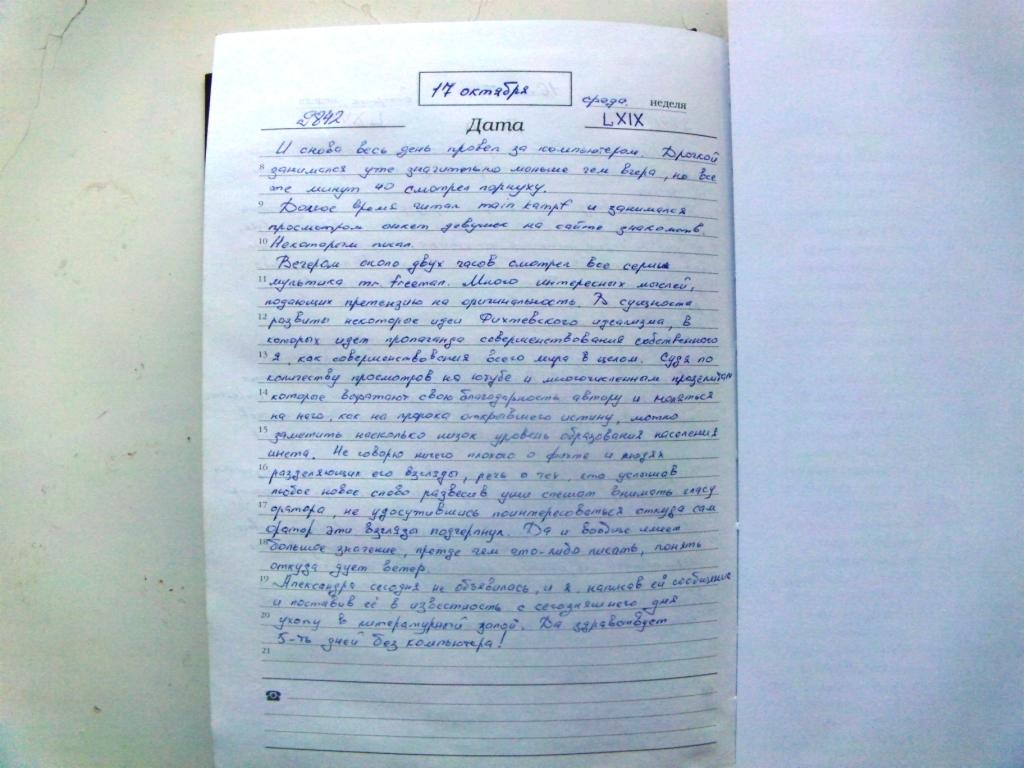 17 октября
среда. неделя
2842 Дата LXIX
И снова весь день провел за компьютером. Дрочкой
8 занимался уже значительно меньше чем вчера, но все
же минут 40 смотрел порнуху.
9 Долгое время читал main kampf и занимался
просмотром анкет девушек на сайте знакомств.
10 Некоторым писал.
Вечером около двух часов смотрел все серии
11 мультика mr. freeman. Много интересных мыслей,
подающих претензию на оригинальность. В сущности
12 развиты некоторые идеи Фихтевского идеализма, в
которых идет пропаганда совершенствования собственного
13 я, как совершенствования всего мира в целом. Судя по
количеству просмотров на ютубе и многочисленным
14 которые выражают свою благодарность автору и молятся
на него, как на пророка открывшего истину, можно
15 заметить насколько низок уровень образования населения
инета. Не говорю ничего плохого о фихте и людях
16 разделяющих его взгляды, речь о тех, кто услышав
любое новое слово развесив уши спешат внимать гласу
17 оратора, не удосужившись поинтересоваться откуда сам
оратор эти взгляды подчерпнул. Да и вообще имеет
18 большое значение, прежде чем что-либо писать, понять
откуда дует ветер.
19 Александра сегодня не объявилась, и я написав ей сообщение
и поставив её в известность с сегодняшнего дня
20 ухожу в литературный запой. Да здравствует
5-ть дней без компьютера!
21